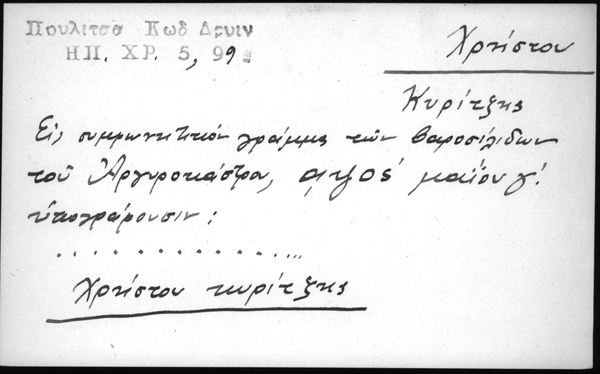 Πουλιτσα Κωδ Δρυιν
ΗΠ. ΧΡ. 5, 99
Χρήστου
Κυρίτζης
Εἰς συμφωνητικόν γράμμα τῶν βαροσιλίδων
τοῦ Ἀργυροκάστρου, αψος΄ μαΐου γ΄.
ὑπογράφουσιν :
. . . . . . . . . . . . . . .
Χρήστου κυρίτζης